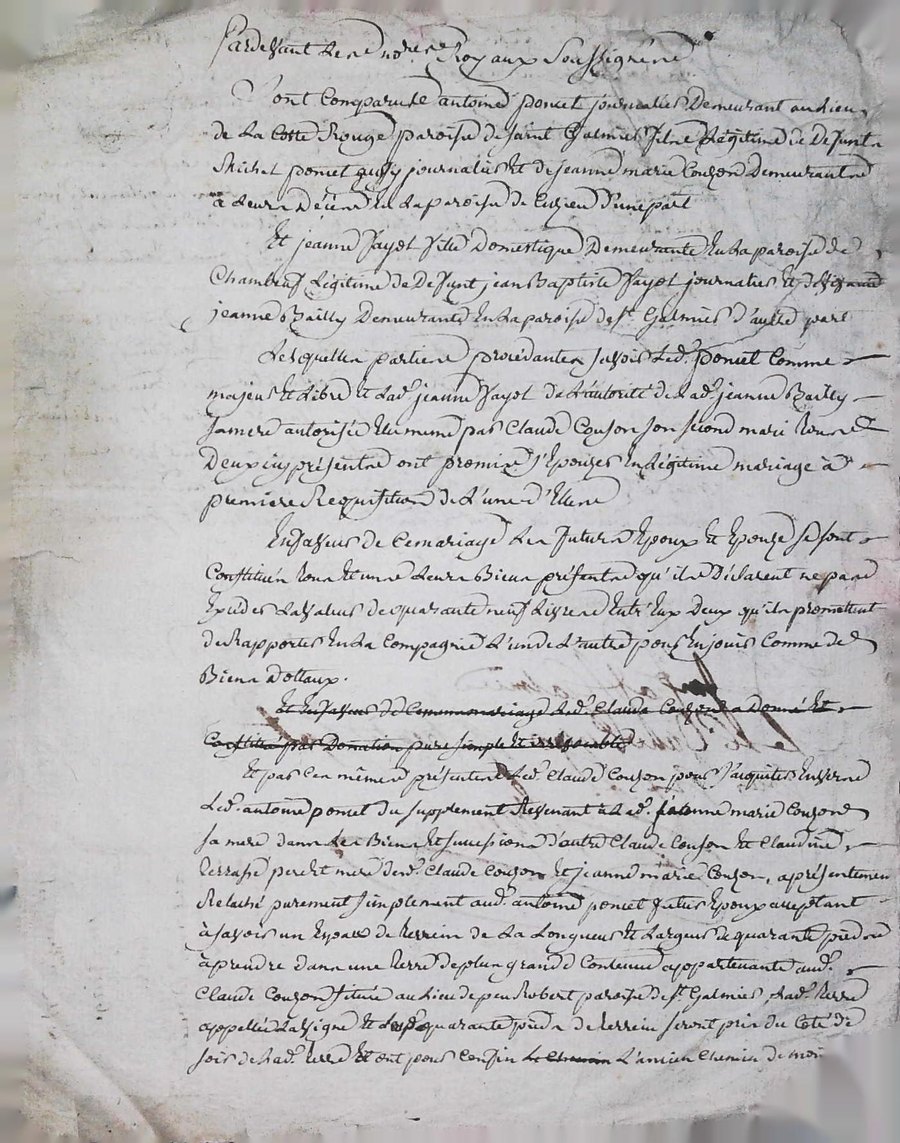 Pardevant les no.res Royaux Soussignés
Sont comparus antoine poncet journalier Demeurant au lieu
de La Coste Rouge paroisse de Saint Galmier fils Légitime de Defunt
Michel poncet journalier Et de jeanne marie Couzon Demeurant
à Leurs En La paroisse de Cuzieu D'une part
Et jeanne fayol fille Domestique Demeurante En La paroisse de
Chambeuf Légitime de Defunt jean Baptiste fayol journalier Et de
jeanne Bailly Demeurante En La paroisse de St. Galmier d'autre part
Lesquelles parties procédantes savoir Led. poncet Comme
majeur Et Libre Et Lad. jeanne fayol de L'autorité de Lad. jeanne Bailly
Sa mere autorisée Elle meme par Claude Couzon son second mari tous
Deux icy présents ont promis s'Epouser En Légitime mariage à
premiere Requisition de L'une d'Elles
En faveur de Ce mariage Les futurs Epoux Et Epouse se sont
Constitués tous Et uns Leurs Biens présents qu'ils Déclarent ne pas
Exceder La valeur de quarante neuf Livres Entr'Eux Deux qu'ils promettent
de Rapporter En La Compagnie L'un de L'autre pour En jouir Comme de
Biens Dottaux.
Et En faveur de Ce meme mariage Led. Claude Couzon a Donné Et
Constitué par Donation pure simple Et irrevocable
Et par Ces mêmes présentes Led. Claude Couzon pour s'acquiter Envers
Led. antoine poncet du supplement Revenant à Lad. jeanne marie Couzon
sa mere dans Les Biens Et successions d'autre Claude Couzon Et Claudine
Terrasse pere Et mere desd. Claude Couzon Et jeanne marie Couzon, a présentement
Relaché purement simplement aud. antoine poncet futur Epoux acceptant
à savoir un Espace de terrein de La Longueur Et Largeur de quarante pieds
à prendre dans une terre de plus grande Contenue appartenante aud.
Claude Couzon située au Lieu de peu Robert paroisse de St. Galmier, Lad. terre
appellée La vigne Et Lesd. quarante pieds de terrein seront pris du Coté de
soir de Lad. terre Et ont pour Confin Le Chemin L'ancien Chemin de